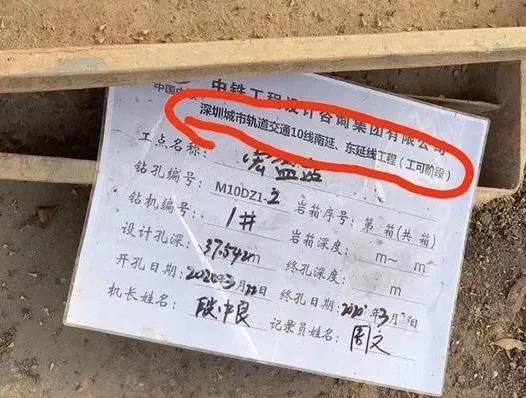 中铁工程设计咨询集团有限公司
中国中
深圳城市轨道交通10线南延、东延线工程（工可阶段）
工点名称：
钻孔编号：M10DZ1-2 岩箱序号：第 箱(共 箱)
钻机编号：1# 岩箱深度： m~ m
设计孔深：37.542m 终孔深度： m
开孔日期：2020年3月22日 终孔日期：2020年3月 日
机长姓名：段中良 记录员姓名：周又